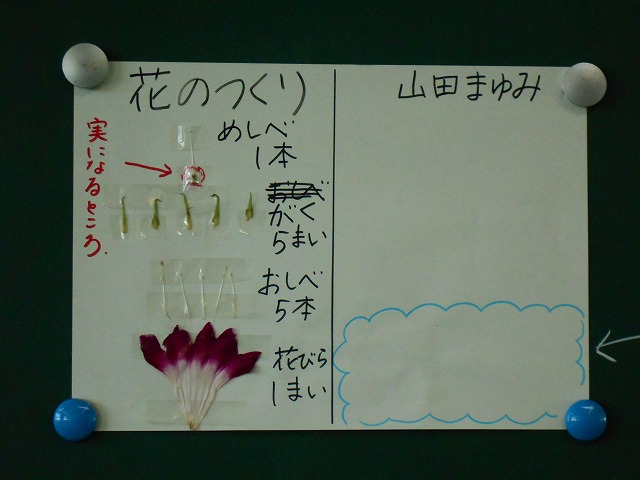 花のつくり
山田まゆみ
めしべ
1本
実になるところ.
がく
5まい
おしべ
5本
花びら
1まい